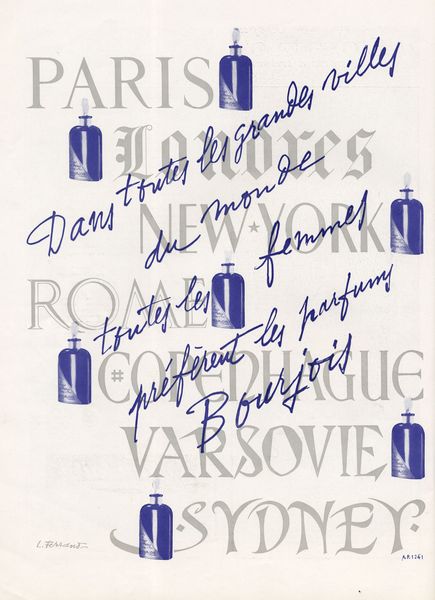 PARIS
Londres
NEW★YORK
ROME
#COPENHAGUE
VARSOVIE
·SYDNEY·
Dans toutes les grandes villes
du monde
toutes les femmes
préfèrent les parfums
Bourjois
L. Ferrand
AR1261